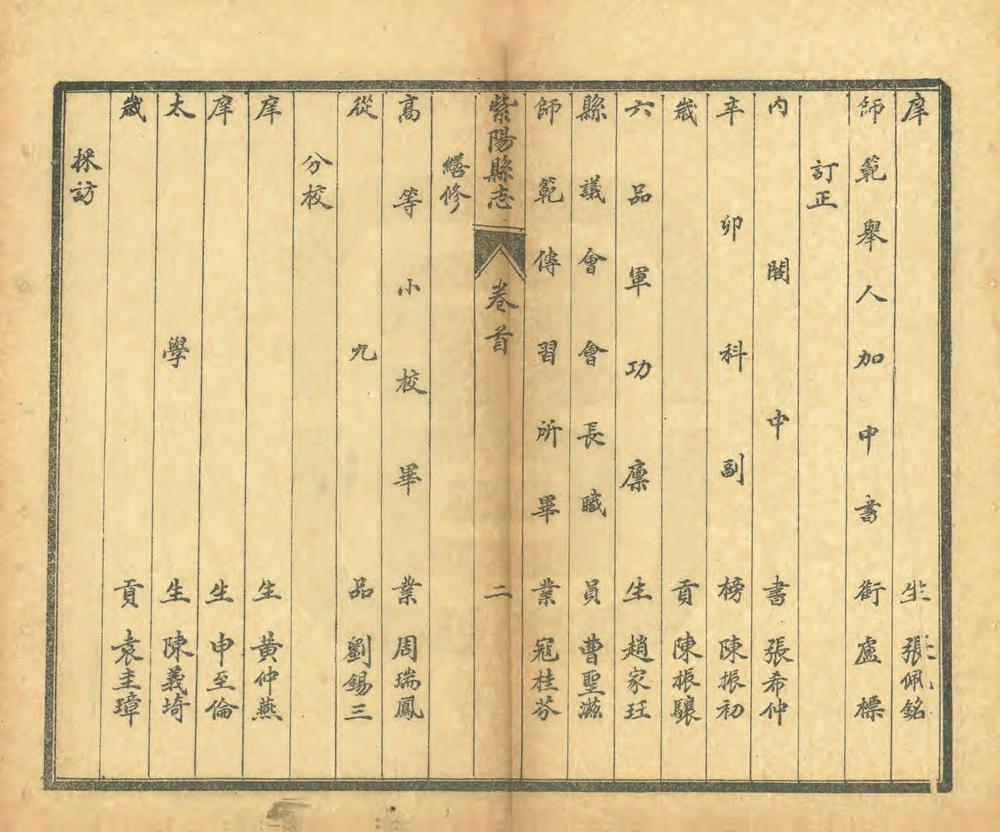 庠生張佩銘
師範舉人加中書銜盧標
訂正
內閣中書張希仲
辛卯科副榜陳振初
歲貢陳振驤
六品軍功廪生趙家珏
縣議會會長職員曹聖滋
師範傳習所畢業冦桂芬
紫陽縣志 卷首 二
繕修
高等小校畢業周瑞鳳
從九品劉錫三
分校
庠生黃仲燕
庠生申至倫
太學生陳義埼
歲貢袁圭璋
採訪